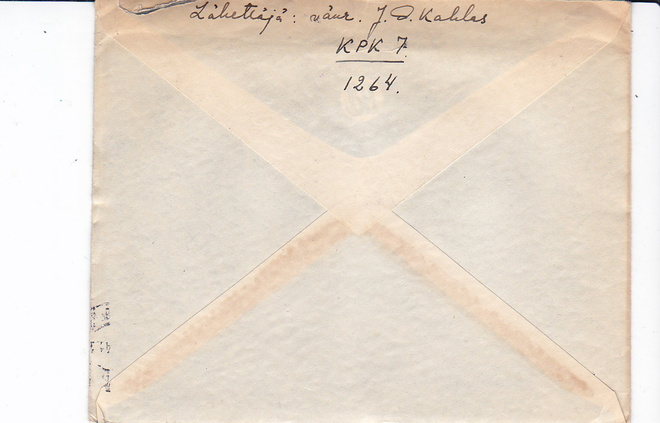 Lähettäjä: vänr. J. O. Kahlas
KPK 7
1264.